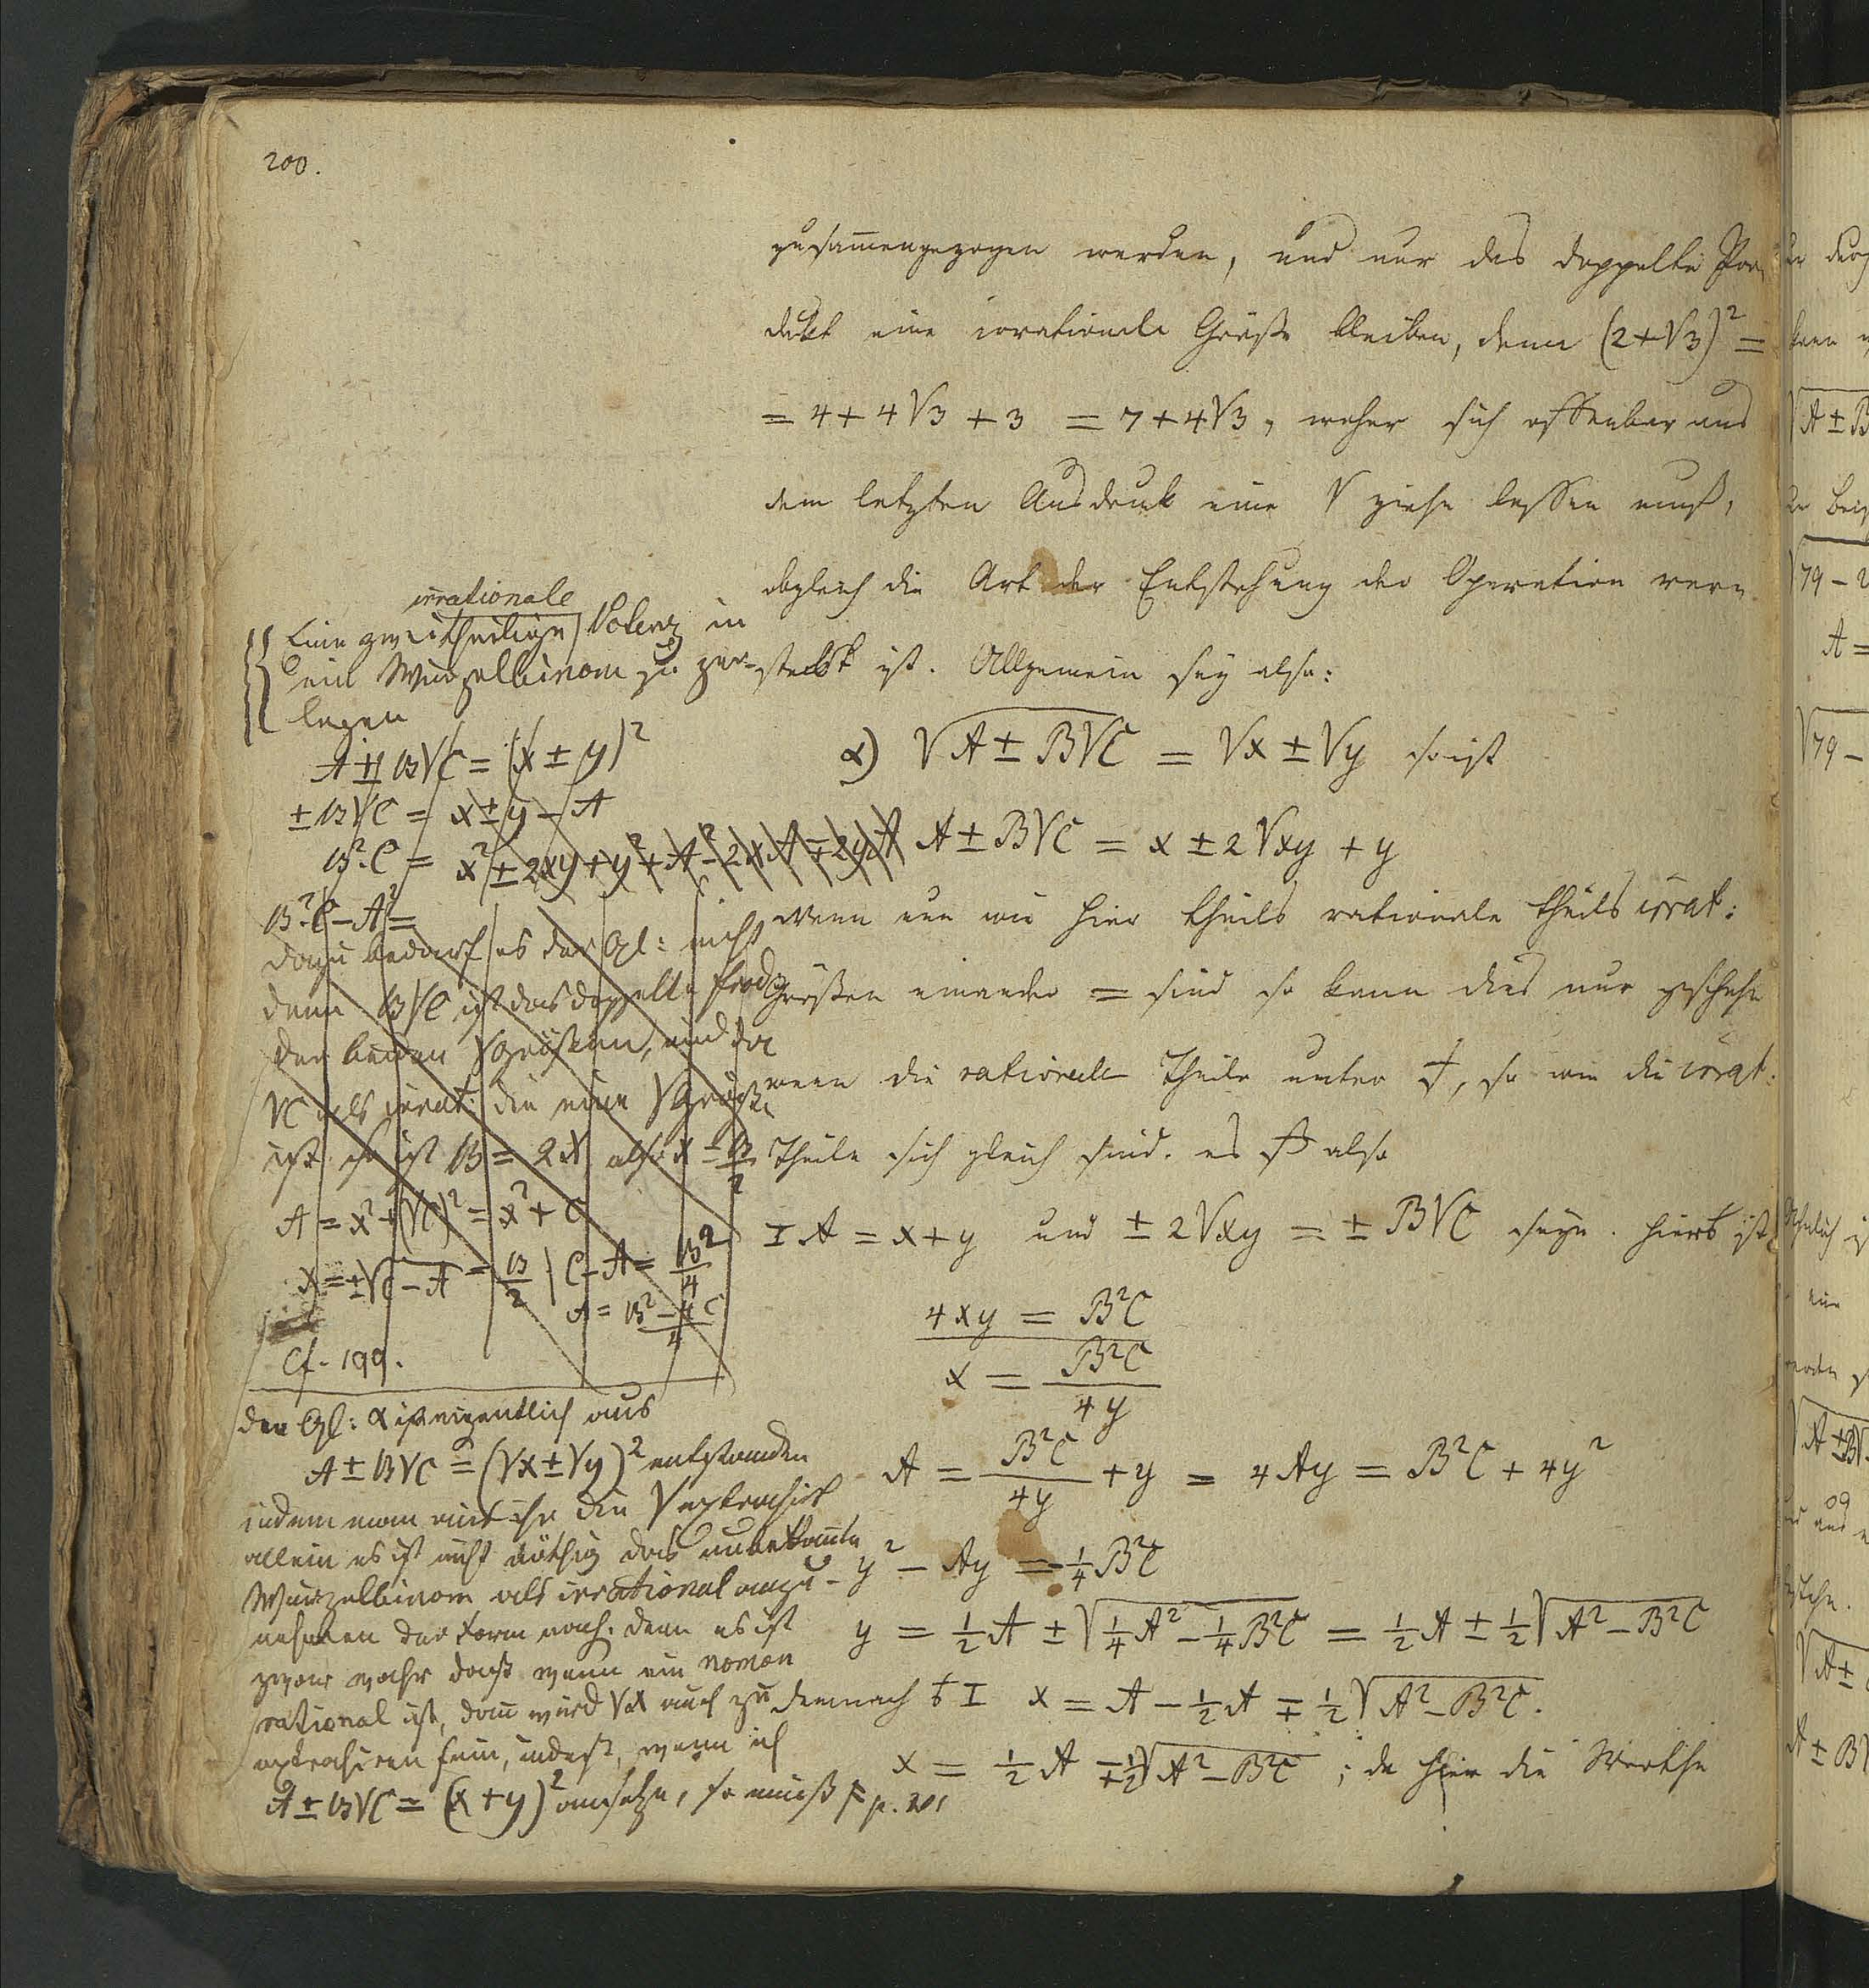 200.
zusam̅engezogen werden, und nur das doppelte Pro-
dukt eine irrationale Größe bleiben, denn (2+√3)² =
= 4 + 4√3 + 3 = 7 + 4√3, woher sich offenbar aus
dem letzten Ausdruck eine √ ziehn lassen muß,
obgleich die Art der Entstehung der Operation ver-
steckt ist. Allgemein sey also:
α) √(A ± B√C) = √x ± √y so ist
A ± B√C = x ± 2√xy + y
Wenn nun wie hier theils rationale theils irrat:
Größen einander = sind so kann dies nur geschehn
wenn die rationale Theile unter sich, so wie die irrat:
Theile sich gleich sind. es also
I A = x + y und ± 2√xy = ± B√C seyn. hier ist
4xy = B²C
x = B²C/4y
A = B²C/4y + y = 4Ay = B²C + 4y²
y² − Ay = −¼B²C
y = ½A ± √(¼A² − ¼B²C) = ½A ± ½√(A² − B²C)
demnach I x = A − ½A ∓ ½√(A² − B²C).
x = ½A ∓ ½√(A² − B²C) ; da hier die Werthe
irrationale
Eine zweitheilige Potenz in
ein Wurzelbinom zu zer-
legen
A ± B√C = (x ± y)²
± B√C = x ± y − A
B²·C = x² ± 2xy + y² + A² − 2xA ∓ 2yA
B²·C − A² =
dazu bedarf es der Gl: nicht
denn B√C ist das doppelte Prod
der beiden √Größen, und da
√C als irrat: die eine √Größe
ist so ist B = 2x also x = B/2
A = x² + (√C)² = x² + C
x = ±√(C − A) = B/2 | C − A = B²/4
A = B² − 4C/4
Cf. 199.
Der Gl: α ist eigentlich aus
A ± B√C = (√x ± √y)² entstanden
indem man aus ihr die √ extrahirt
allein es ist nicht nöthig das unbekan̅te
Wurzelbinom als irrational anzu-
nehmen der Form nach. denn es ist
zwar wahr daß wenn ein nomen
rational ist, dan̅ wird √x auch zu
extrahiren sein, indeß, wenn ich
A ± B√C = (x + y)² ansetze, so muß p. 201